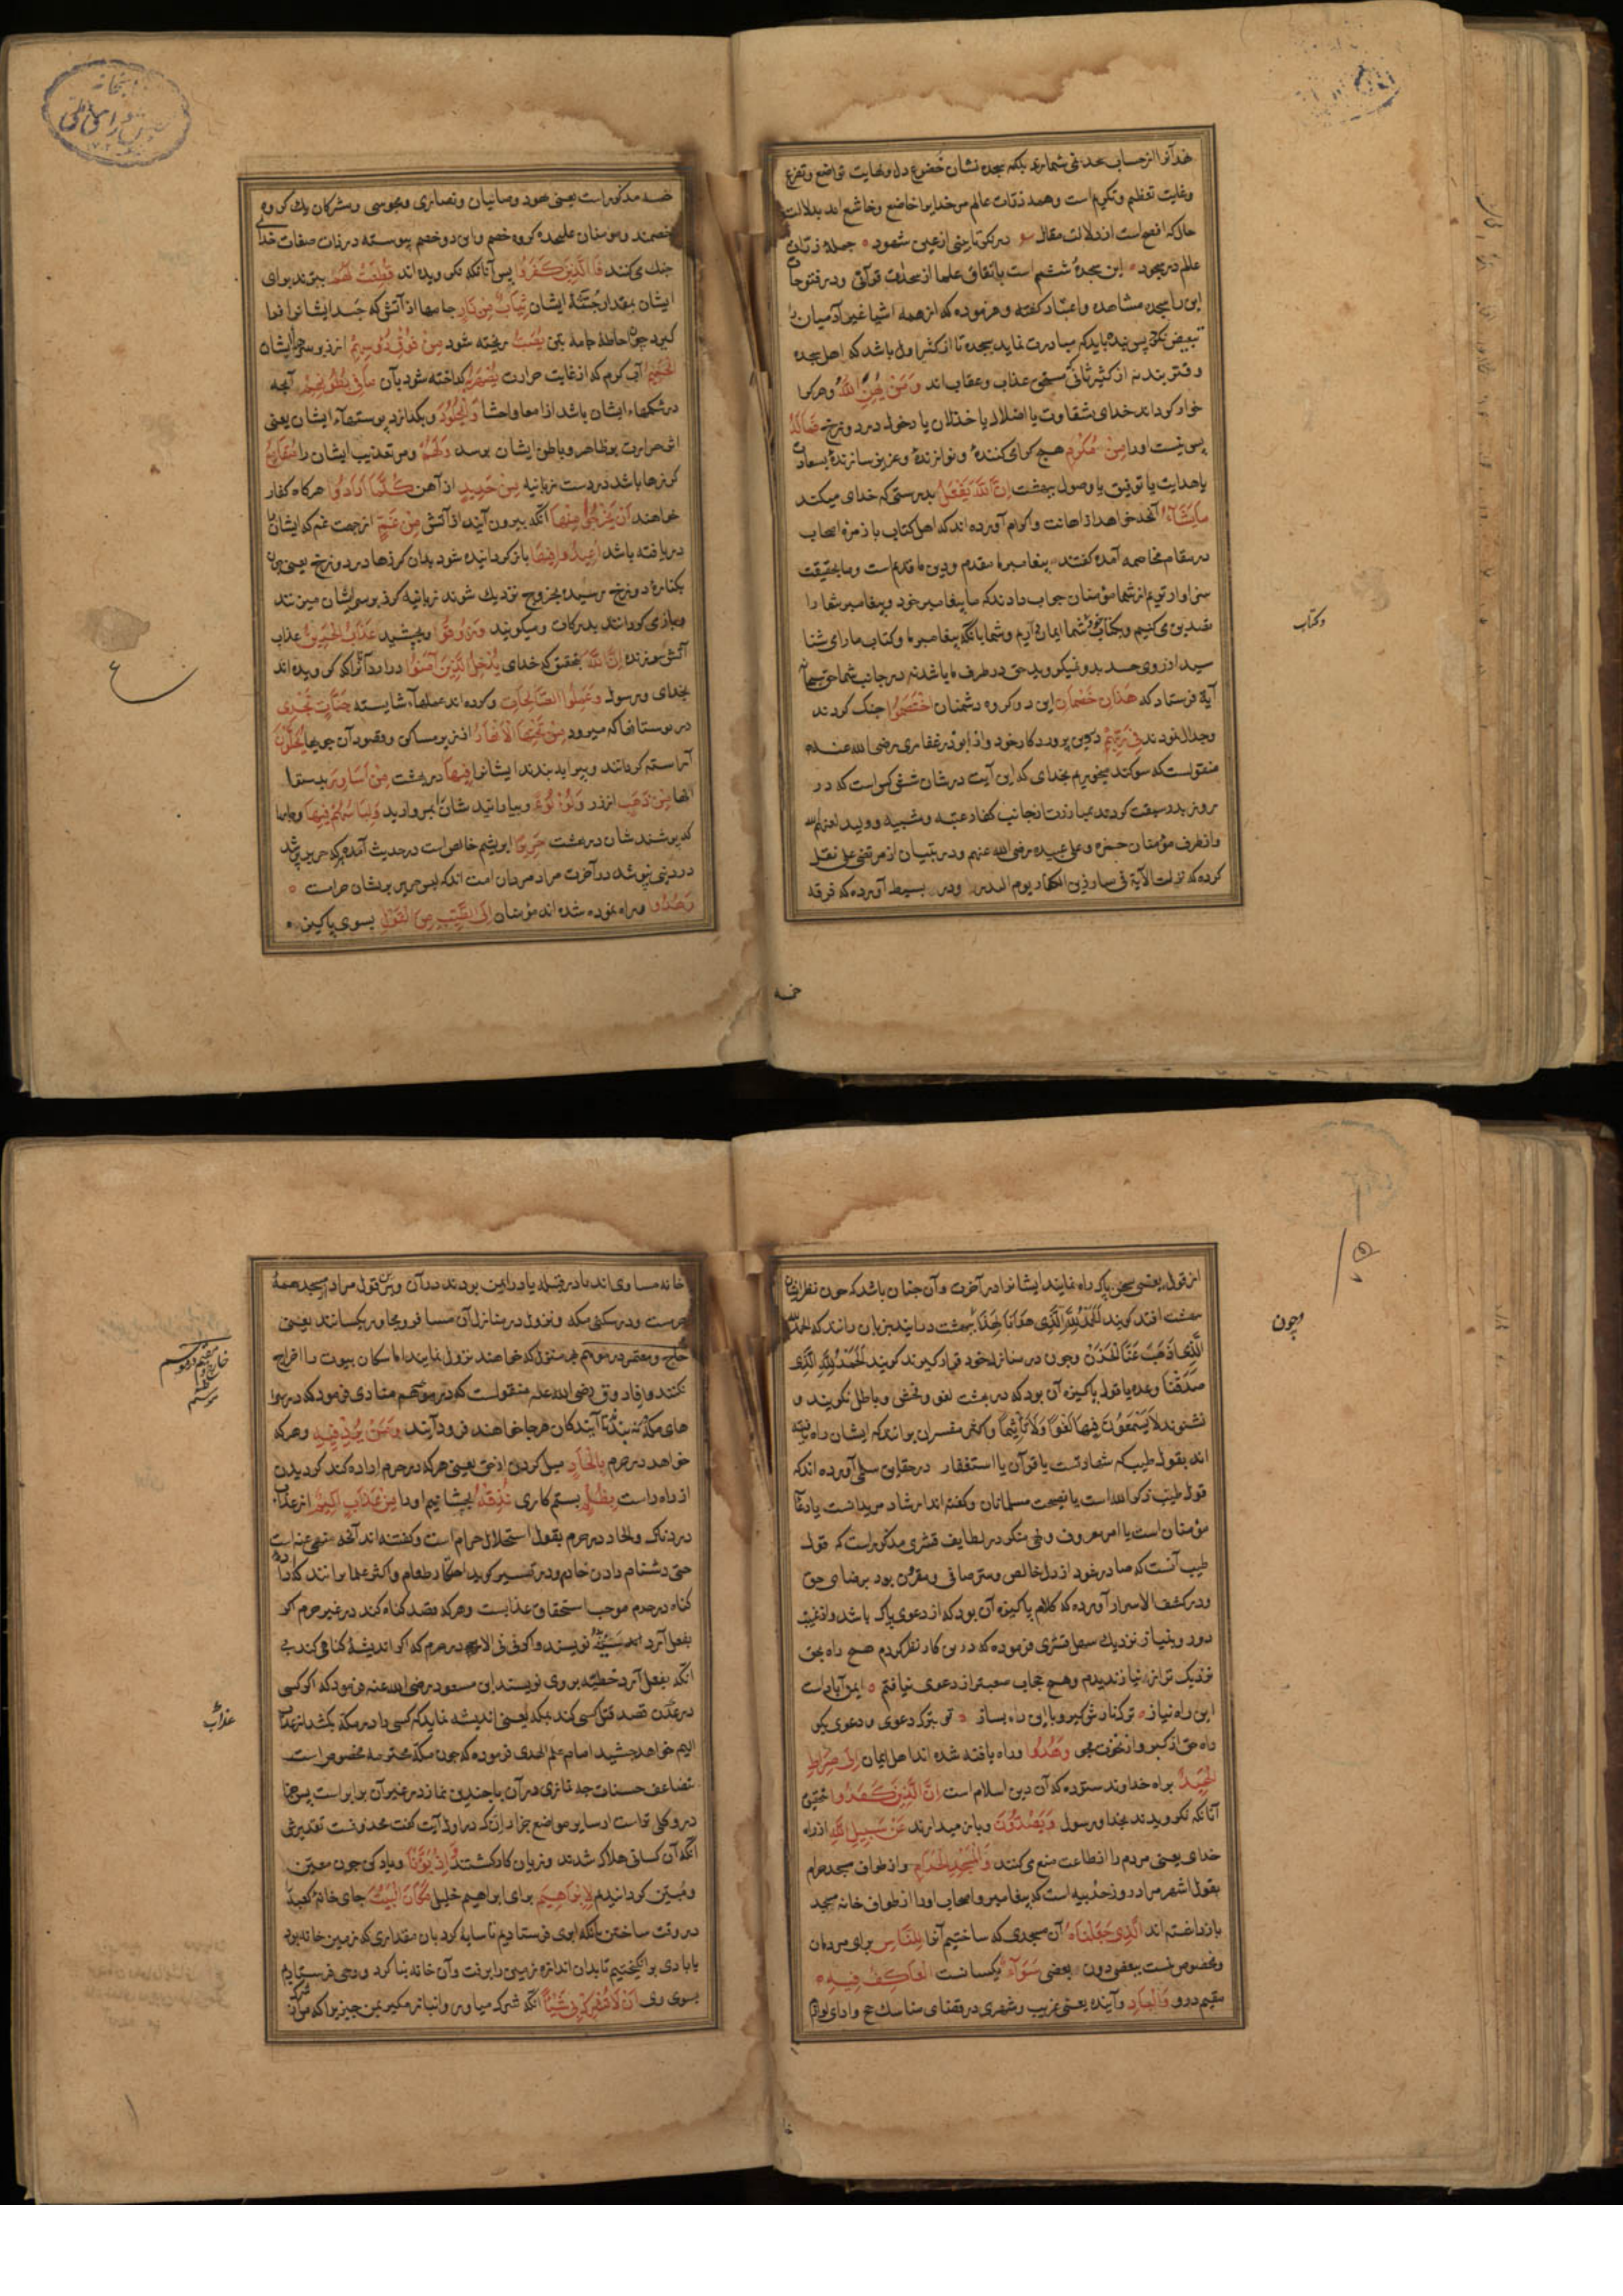 وغایت تعظیم وتکریم است وهمه ذرات عالم مر خدایرا خاضع وخاشع اند بدلالت
حال که افصح است از دلالت مقال
عالم در سجود این سجدهٔ ششم است باتفاق علما از سجدات قرآنی ودر فتوحات
این را سجده مشاهده واعتبار گفته وفرموده که از همه اشیا غیر آدمیان را
تبعیض نکرد پس بنده باید که مبادرت نماید بسجده تا از کثیر اول باشد که اهل سجده
وقربتند نه از کثیر ثانی که مستحق عذاب وعقاب اند وَمَنْ يُهِنِ اللَّهُ وهرکرا
خوار گرداند خدای بشقاوت یا اضلال یا خذلان یا دخول در دوزخ فَمَا لَهُ
پس نیست اورا مِنْ مُكْرِمٍ هیچ گرامی کنندهٔ ونوازندهٔ وعزیز سازندهٔ بسعادت
یا هدایت یا توفیق یا وصول ببهشت إِنَّ اللَّهَ يَفْعَلُ بدرستی که خدای میکند
مَا يَشَاءُ آنچه خواهد از اهانت واکرام آورده اند که اهل کتاب با زمرهٔ اصحاب
در مقام مخاصمه آمده گفتند پیغامبر ما مقدم ودین ما قدیم است وما بحقیقت
سزاوارتریم از شما مؤمنان جواب دادند که ما پیغامبر خود وپیغامبر شما را
تصدیق می کنیم وبکتاب خود وشما ایمان داریم وشما با آنکه پیغامبر ما وکتاب ما را می شنا
سید از روی حسد بدو نمیگروید حق در طرف ما باشد نه در جانب شما حق سبحانه
آیة فرستاد که هَذَانِ خَصْمَانِ این دو گروه دشمنان اخْتَصَمُوا جنگ کردند
وجدال نمودند فِي رَبِّهِمْ در دین پروردگار خود واز ابوذر غفاری رضی الله عنه
منقولست که سوگند میخوریم بخدای که این آیت در شان شش کس است که در
روز بدر سبقت کردند بمبارزت از جانب کفار عتبه وشیبه وولید لعنهم الله
واز طرف مؤمنان حمزه وعلی وعبیده رضی الله عنهم ودر تبیان از مرتضی علی نقل
کرده که نزلت الآیة فی مبارزین الکفار یوم البدر ودر بسیط آورده که فرقه
وکتاب
خمسه
خمسه مذکور است یعنی هود وصابیان ونصاری ومجوسی ومشرکان یک گروه
خصمند ومؤمنان علیحده گروه خصم واین دو خصم پیوسته در ذات وصفات خدا
جنگ می کنند فَالَّذِينَ كَفَرُوا پس آنانکه نگرویده اند قُطِّعَتْ لَهُمْ ببرند برای
ایشان بمقدار جثهٔ ایشان ثِيَابٌ مِنْ نَارٍ جامها از آتش که جسد ایشانرا فرا
گیرد چون احاطهٔ جامه بتن يُصَبُّ ریخته شود مِنْ فَوْقِ رُءُوسِهِمُ از زبر سرهای ایشان
الْحَمِيمُ آبی گرم که از غایت حرارت يُصْهَرُ بِهِ گداخته شود بآن مَا فِي بُطُونِهِمْ آنچه
در شکمهاء ایشان باشد از امعا واحشا وَالْجُلُودُ وبگدازد پوستهاء ایشان یعنی
اثر حرارت بر ظاهر وباطن ایشان برسد وَلَهُمْ ومر تعذیب ایشان را مَقَامِعُ
گرزها باشد در دست زبانیه مِنْ حَدِيدٍ از آهن كُلَّمَا أَرَادُوا هرگاه کفار
خواهند أَنْ يَخْرُجُوا مِنْهَا آنکه بیرون آیند از آتش مِنْ غَمٍّ از جهت غم که ایشان را
دریافته باشد أُعِيدُوا فِيهَا باز گردانیده شود بدان گرزها در دوزخ یعنی چون
بکنارهٔ دوزخ رسیده بخروج نزدیک شوند زبانیه گرز بر سر ایشان میزنند
وباز می گردانند بدرکات ومیگویند وَذُوقُوا وبچشید عَذَابَ الْحَرِيقِ عذاب
آتش سوزنده إِنَّ اللَّهَ بتحقیق که خدای يُدْخِلُ الَّذِينَ آمَنُوا درآرد آنانرا که گرویده اند
بخدای ورسول وَعَمِلُوا الصَّالِحَاتِ وکرده اند عملهاء شایسته جَنَّاتٍ تَجْرِي
در بوستانها که میرود مِنْ تَحْتِهَا الْأَنْهَارُ از زیر مساکن وقصور آن جویها يُحَلَّوْنَ
آراسته گردانند وپیرایه بندند ایشانرا فِيهَا در بهشت مِنْ أَسَاوِرَ بدستوا
نها مِنْ ذَهَبٍ از زر وَلُؤْلُؤًا وبیارایند شان بمروارید وَلِبَاسُهُمْ فِيهَا وجامه
که پوشند شان در بهشت حَرِيرٌ ابریشم خالص است در حدیث آمده که هر که حریر پوشد
در دنیا نپوشد در آخرت مراد مردان امت اند که لبس حریر بدیشان حرامست
وَهُدُوا وراه نموده شده اند مؤمنان إِلَى الطَّيِّبِ مِنَ الْقَوْلِ بسوی پاکیزه
از قول یعنی سخن پاک راه نمایند ایشانرا در آخرت وآن چنان باشد که چون نظر ایشان
ببهشت افتد گویند الْحَمْدُ لِلَّهِ الَّذِي هَدَانَا لِهَذَا وچون ببهشت درآیند بزبان رانند که الحمد لله
الَّذِي أَذْهَبَ عَنَّا الْحَزَنَ وچون در منازل خود قرار گیرند گویند الْحَمْدُ لِلَّهِ الَّذِي
صَدَقَنَا وعده یا قول پاکیزه آن بود که در بهشت لغو وفحش وباطل نگویند و
نشنوند لَا يَسْمَعُونَ فِيهَا لَغْوًا وَلَا تَأْثِيمًا واکثر مفسران برانند که ایشان راه یافته
اند بقول طیب که شهادتست یا قرآن یا استغفار در حقایق سلمی آورده اند که
قول طیب ذکر الله است یا نصیحت مسلمانان وگفته اند ارشاد مریدانست یا دعا
مؤمنان است یا امر معروف ونهی منکر در لطایف قشری مذکور است که قول
طیب آنست که صادر شود از دل خالص وسر صافی ومقرون بود برضای حق
ودر کشف الاسرار آورده که کلام پاکیزه آن بود که از دعوی پاک باشد واز عجب
دور وبنیاز نزدیک سهل تستری فرموده که درین کار نظر کردم هیچ راه بحق
نزدیک تر از نیاز ندیدم وهیچ حجاب صعبتر از دعوی نیافتم ایمن آباد است
این راه نیاز ترک نازش گیر وبا این راه بساز
وَهُدُوا وراه یافته شده اند اهل ایمان إِلَى صِرَاطِ
الْحَمِيدِ براه خداوند ستوده که آن دین اسلام است إِنَّ الَّذِينَ كَفَرُوا بتحقیق
آنانکه نگرویدند بخدا ورسول وَيَصُدُّونَ وباز میدارند عَنْ سَبِيلِ اللَّهِ از راه
خدای یعنی مردم را از طاعت منع می کنند وَالْمَسْجِدِ الْحَرَامِ واز طواف مسجد حرام
بقول اشهر مراد روز حدیبیه است که پیغامبر واصحاب اورا از طواف خانه مسجد
باز داشته اند الَّذِي جَعَلْنَاهُ آن مسجدی که ساختیم آنرا لِلنَّاسِ برای مردمان
ومخصوص نیست ببعضی دون بعضی سَوَاءً یکسانست الْعَاكِفُ فِيهِ
مقیم درو وَالْبَادِ وآینده یعنی غریب وشهری در قضای مناسک حج وادای لوازم
وچون
خانه مساوی اند
حرمست ودر سکنی مکه ونزول در منازل آن مسافر ومجاور یکسانند یعنی
حاج ومعتمر در موسم هر منزل که خواهند نزول نمایند اما سکان بیوت را اخراج
نکنند واز فاروق رضی الله عنه منقولست که در موسم منادی فرمود که درسرا
های مکه نه بندند تا آیندگان هرجا خواهند فرود آیند وَمَنْ يُرِدْ فِيهِ وهرکه
خواهد در حرم بِإِلْحَادٍ میل کردن از حق یعنی هرکه در حرم اراده کند گردیدن
از راه راست بِظُلْمٍ بستم کاری نُذِقْهُ بچشانیم اورا مِنْ عَذَابٍ أَلِيمٍ از عذاب
دردناک والحاد در حرم بقول استحلال حرام است وگفته اند آنچه منهی عنه است
حتی دشنام دادن خادم ودر تفسیر گوید احتکار طعام واکثر علما برانند که اراده
گناه در حرم موجب استحقاق عذابست وهرکه قصد گناه کند در غیر حرم اگر
انکه بفعل آرد خطیئه بروی نویسند ابن مسعود رضی الله عنه فرمود که اگر کسی
در عدن قصد قتل کسی کند بمکه یعنی اندیشه نماید که کسی را در مکه بکشد از عذاب
الیم خواهد چشید امام علم الهدی فرموده که چون مکه محترمه مخصوص است
بتضاعف حسنات چه نمازی در آن با چندین نماز در غیر آن برابر است
آنکه آن کسانی هلاک شدند وزیان کار گشتند وَإِذْ بَوَّأْنَا ویاد کن چون معین
ومبین گردانیدیم لِإِبْرَاهِيمَ برای ابراهیم خلیل مَكَانَ الْبَيْتِ جای خانه کعبه
در وقت ساختن بآنکه ابری فرستادیم تا سایه کرد بآن مقداری که زمین خانه بود
یا بادی برانگیختیم تا بدان اندازه زمین را برفت وآن خانه بنا کرد ووحی فرستادیم
بسوی وی أَنْ لَا تُشْرِكْ بِي شَيْئًا آنکه شرک میاور وانباز مگیر بمن چیزیرا
عذاب